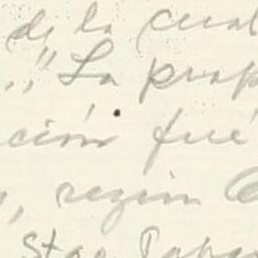 de la cual
," La prop
ción fué
, según
Sta.